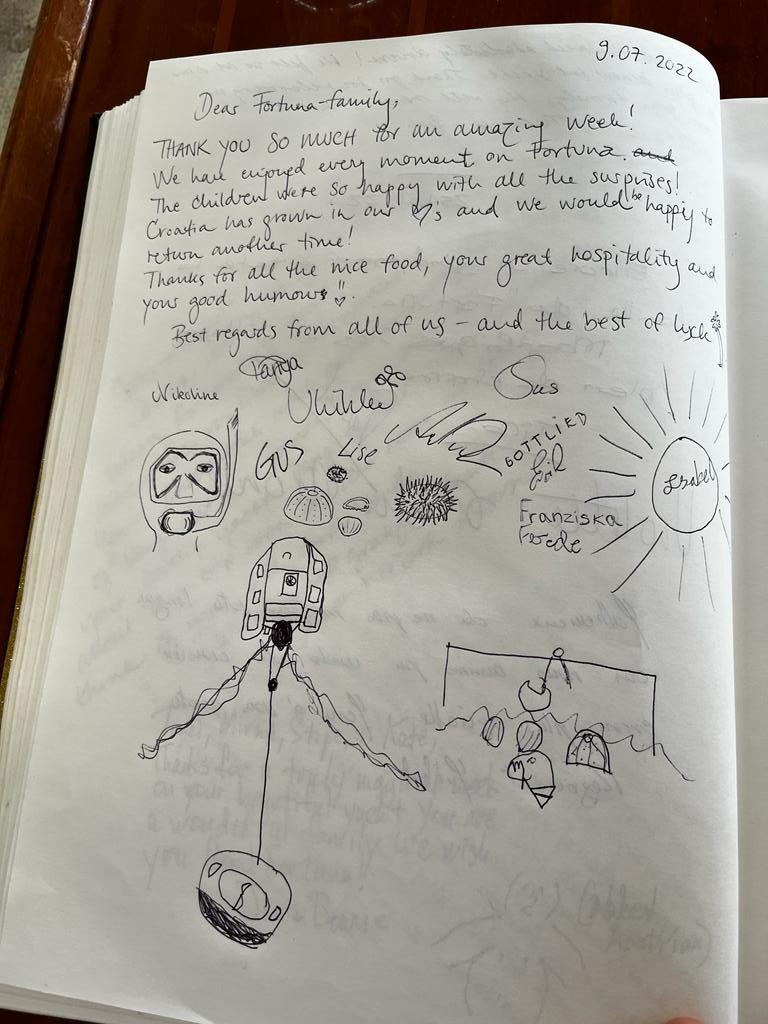 9.07.2022
Dear Fortuna-family,
THANK YOU SO MUCH for an amazing week!
We have enjoyed every moment on Fortuna. and
The children were so happy with all the surprises!
Croatia has grown in our ♡'s and we would be happy to
return another time!
Thanks for all the nice food, your great hospitality and
your good humour!
Best regards from all of us – and the best of luck
Tanja
Nikoline
Sus
GUS
Lise
GOTTLIED
Franziska
Frede
Isabel